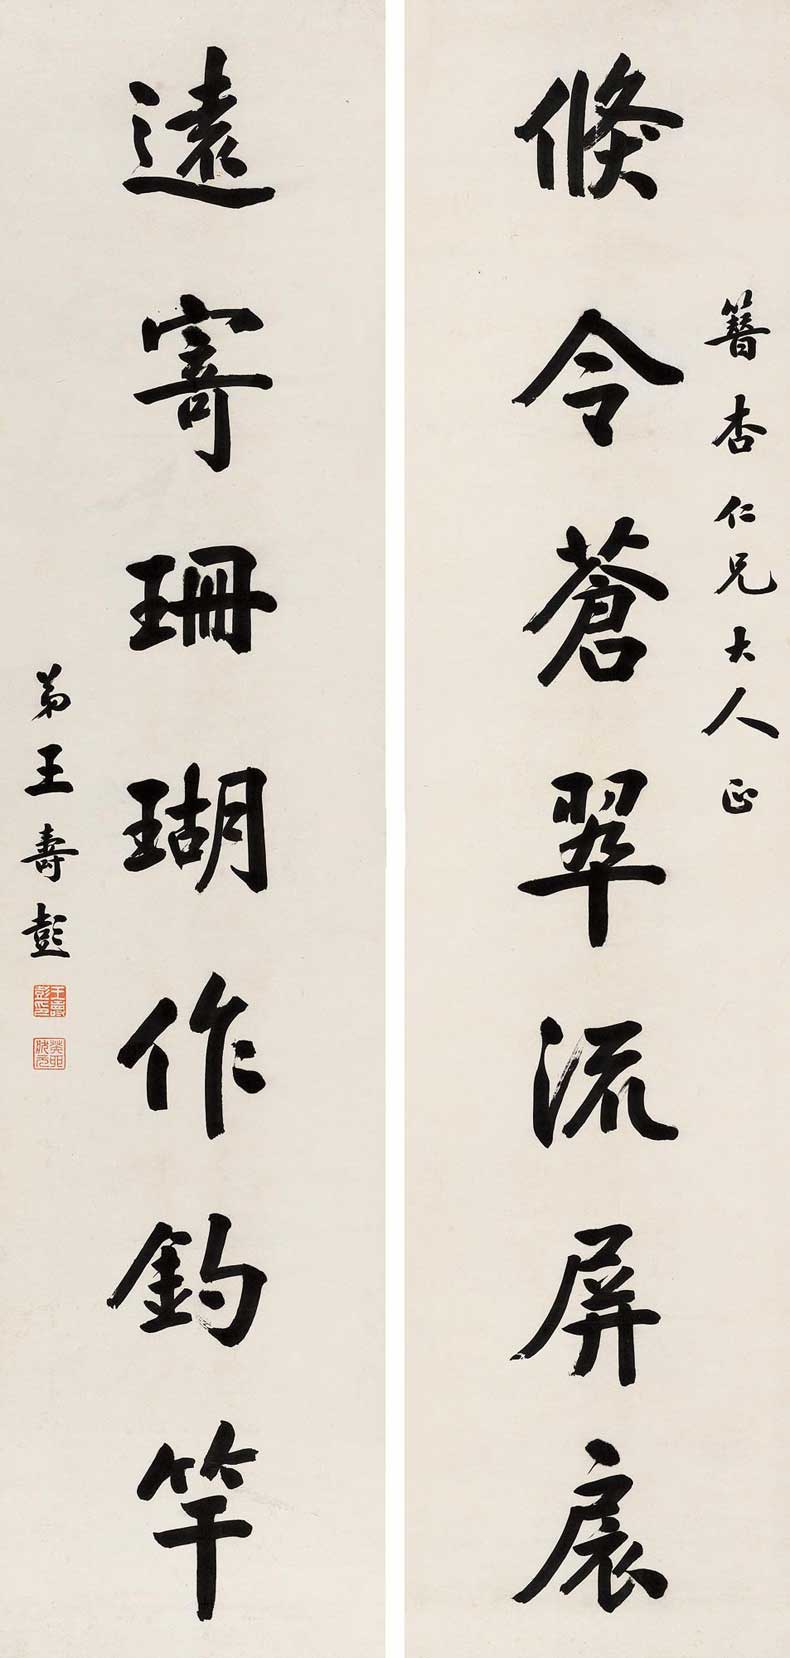 簪杏仁兄大人正
倐令蒼翠流屏扆
遠寄珊瑚作釣竿
弟王壽彭
王壽彭印
癸卯狀元